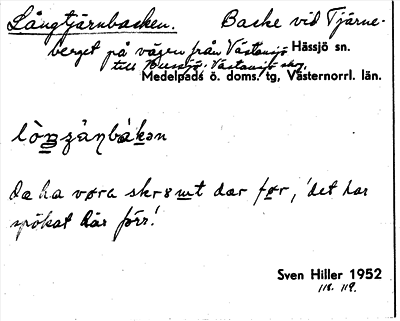 Långtjärnbacken. Backe vid Tjärne-
berget på vägen från Västansjö Hässjö sn.
till Bussjö. Västansjö skog.
Medelpads ö. doms. tg, Västernorrl. län.
lòŋzäŋbákən
da ha vora skrømt dar før, 'det har
spökat där förr'.
Sven Hiller 1952
118. 119.